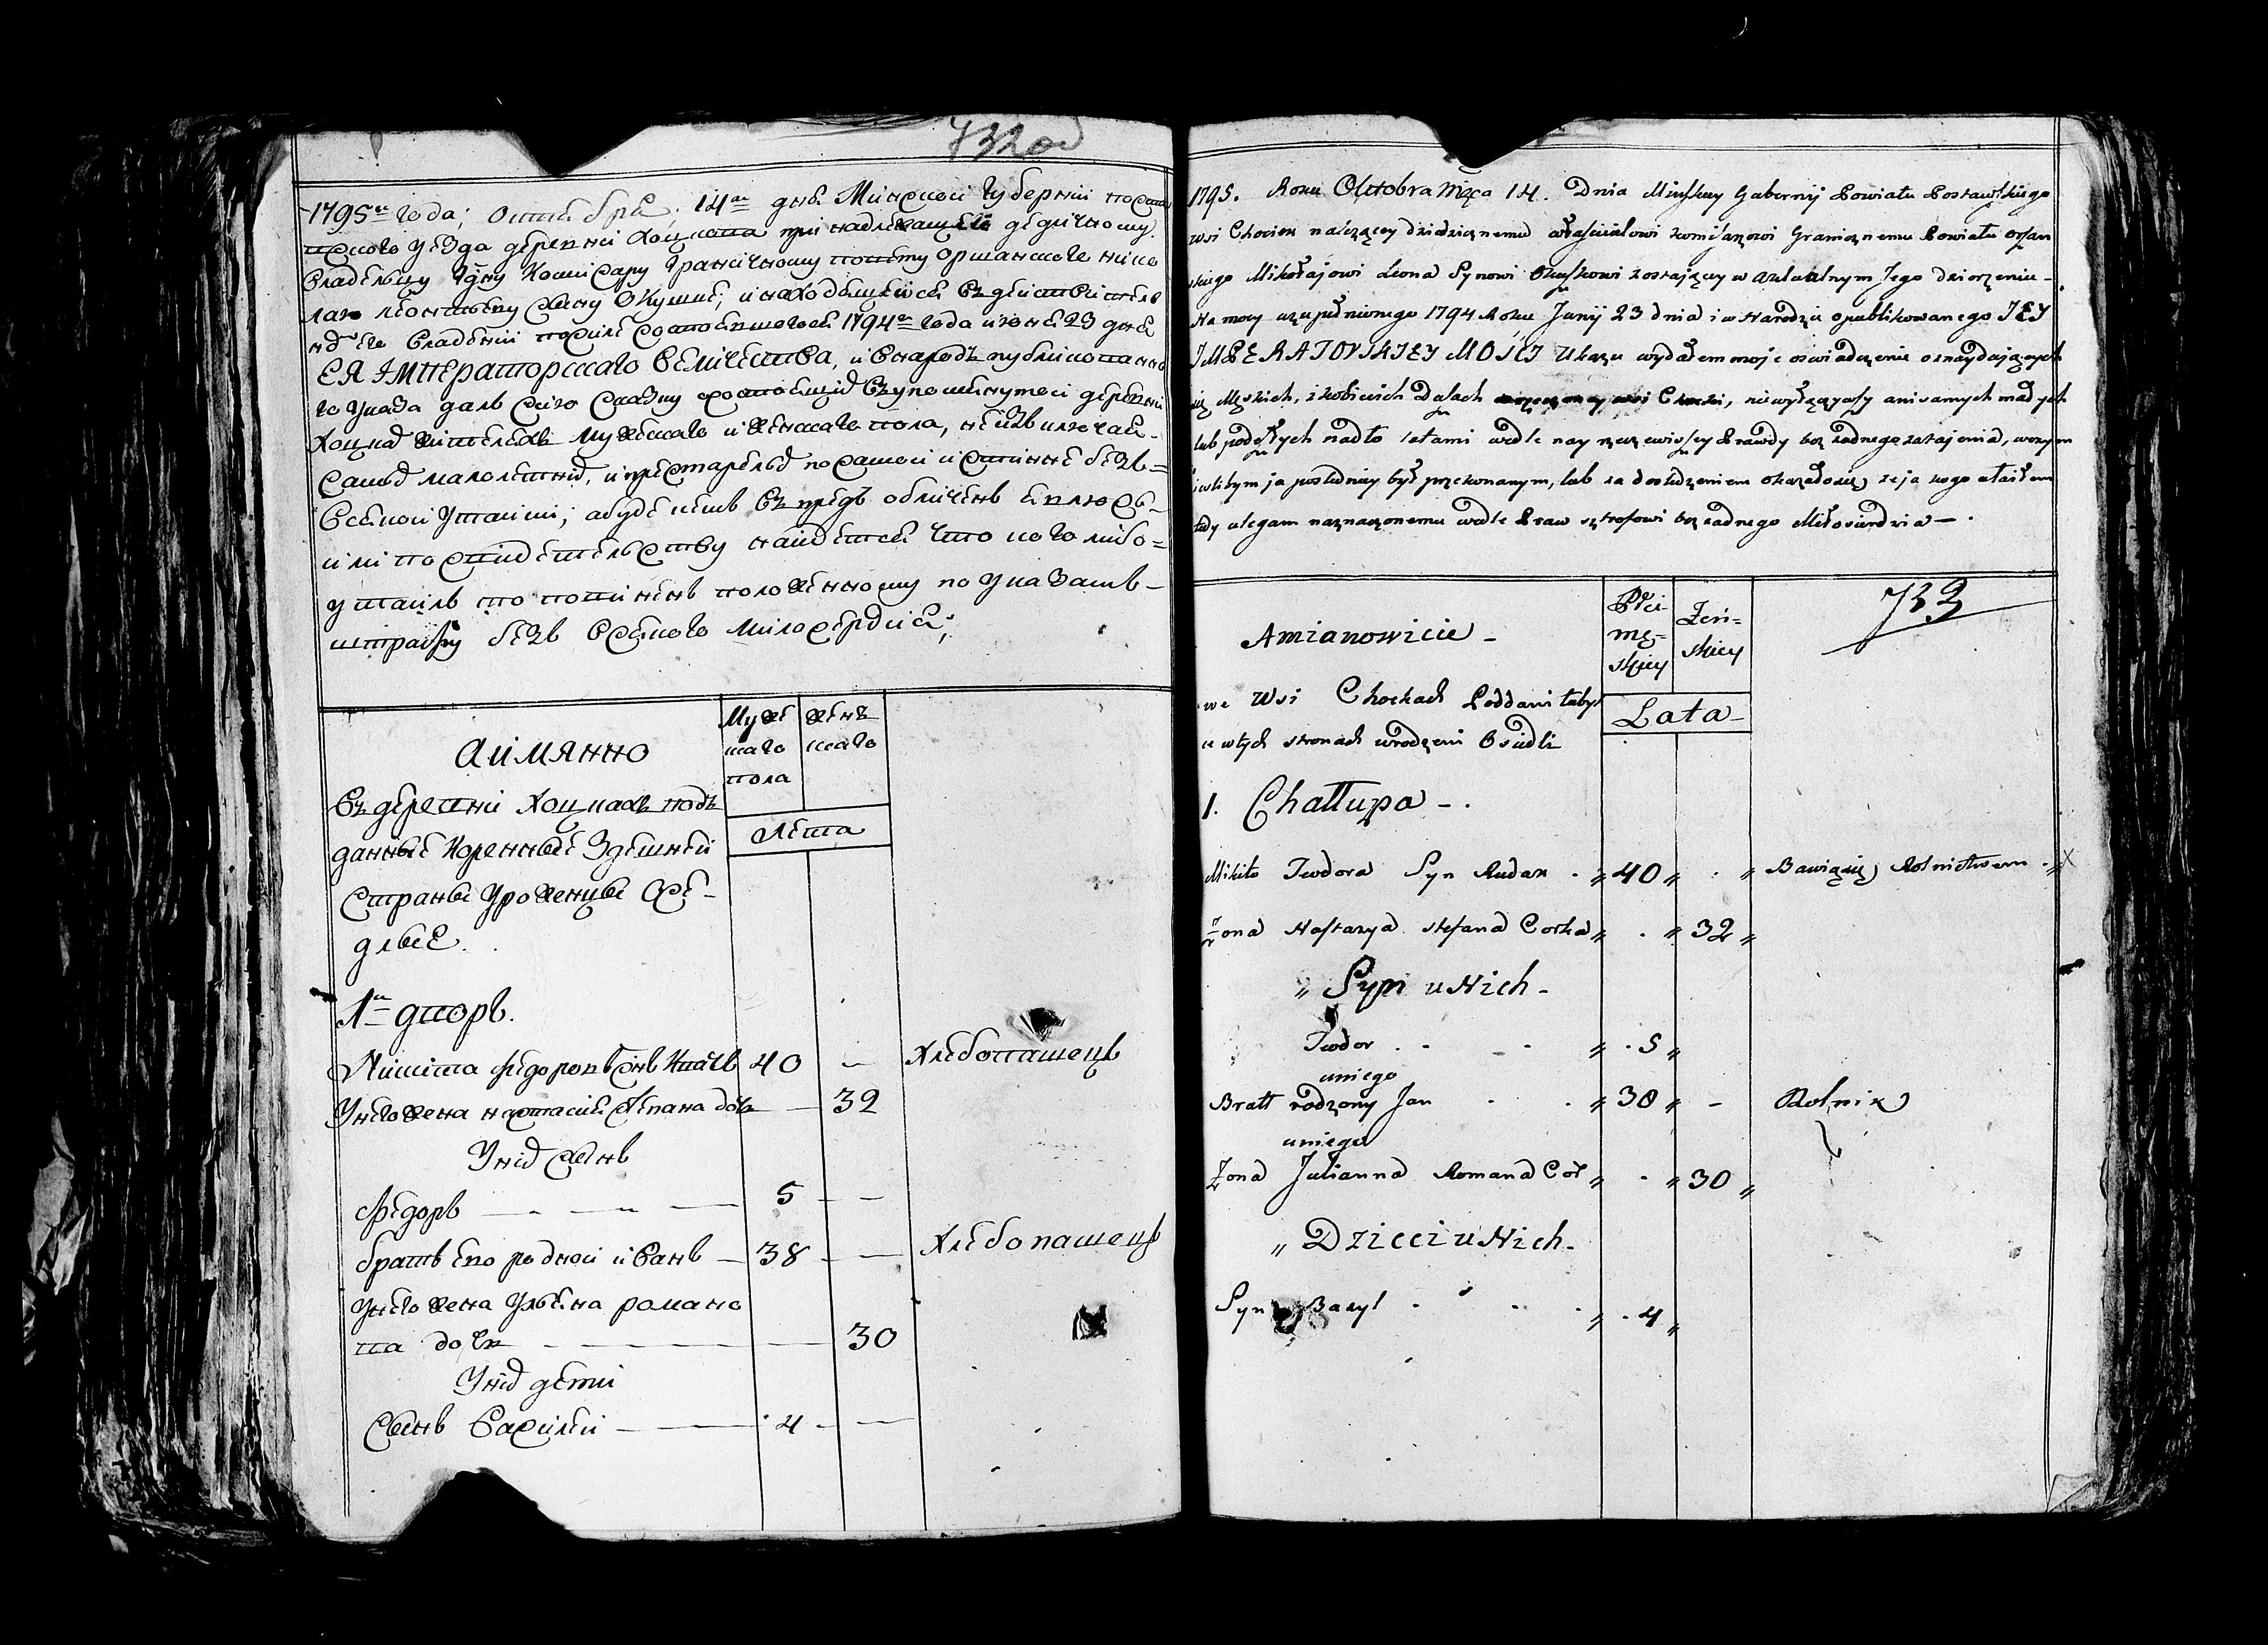 732 об
1795го года; октября; 14го дня Минской Губернии Постав
ского уезда деревни Хоцкова принадлежащей дедичному
владельцу Гдну комисару граничному повету оршанского Нико
лаю леонтьеву сыну Окушке, и находящейся въ действитель
ной его владении по силе состоявшогося 1794го года июня 23 дня
ЕЯ ІМПЕРаторскаго Величества, и в народъ публикованна
го указа далъ сию сказку состоящихъ въ упомянутой деревни
Хоцках жителехъ мужескаго и женскаго пола, не изключая
самых малолетних, и престарелых по самой истинне безъ=
всякой утайки; а буде кемъ въпредь обличенъ явлюсь-
или по свидетельству найдется что кого либо=
утаилъ то повиненъ положенному по указамъ-
штрафу безъ всякаго милосердия;
аимянно
Муже
скаго
пола
жен
скаго
Въ деревни Хоцкахъ под
данные коренные здешней
страны уроженцы Осе-
длые.
Лета
1й дворъ.
Микита Федоровъ сынъ 40 — Хлебопашецъ
У него жена настасия степана дочь — 32
У них сынъ
Федоръ — 5 —
братъ его родной иванъ — 38 — Хлебопашецъ
У него жена Ульяна романо
ва дочь — 30
У них дети
Сынъ Василей — 4 —
1795. Roku Oktobra Mięca 14. Dnia Minskey Gubernij Powiatu Postawskiego
wsi Chociek należącey dziedzicznemu własciciłowi komisarzowi Granicznemu Powiatu orszan
skiego Mikołajowi Leona Synowi Okuszkowi zostaiący w aktualnym Jego dzierzeniu -
Na mocy uzupełnionego 1794 Roku Junij 23 dnia i w Narodzie opublikowanego JEY
IMPERATORSKIEY MOSCI Ukazu wydałem moje oswiadczenie oznaydających
się Męskich, i kobiecich Duszach, niewyłączaiąc ani samych małych
lub podeszłych nadto letami wedle nay rzeczewistszey Prawdy bez żadnego zatajenia, w czym
iezlibym ja posledniey był przekonanym, lub za dosledzeniem okazałosię że ja kogo utaiłem
tedy ulegam naznaczonemu wedle Praw sztrofowi bez żadnego Miłosierdzia — .
732
Amianowicie -
Płci
mę-
skiey
Żeń-
skiey
we Wsi Chockach Poddani tuby
w wtych stronach urodzeni Osiedli
Lata -
1. Chałłupa - .
Mikito Teodora Syn Rudak 40 Bawiącsię Rolnictwem
Żona Nastazya Stefana Corka 32
Syn u Nich -
Teodor . . - 5
uniego
Bratt rodzony Jan 38 - Rolnik
uniego
Żona Julianna Romana Cor 30
Dzieci u Nich -
Syn Bazyl 4